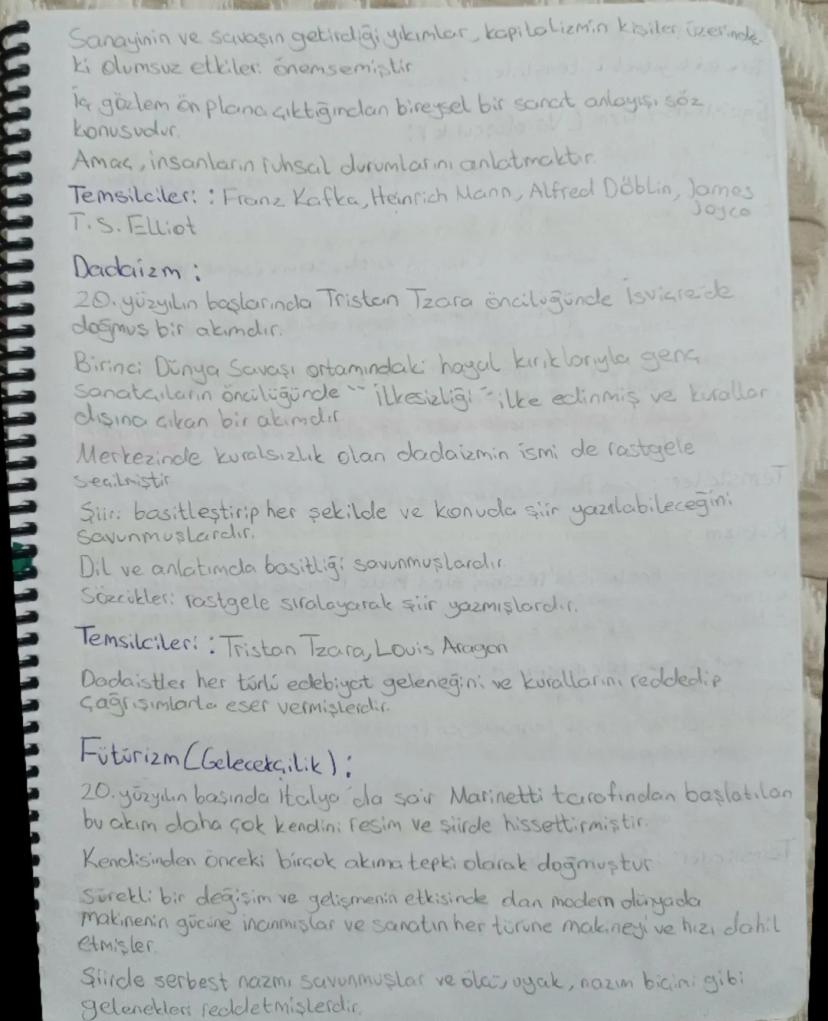 Sanayinin ve savaşın getirdiği yıkımlar, kapitalizmin kişiler üzerinde-
ki olumsuz etkileri önemsemiştir
İç gözlem ön plana çıktığından bireysel bir sanat anlayışı söz
konusudur.
Amaç, insanların ruhsal durumlarını anlatmaktır.
Temsilcileri : Franz Kafka, Heinrich Mann, Alfred Döblin, James
Joyce
T.S. Elliot
Dadaizm :
20. yüzyılın başlarında Tristan Tzara öncülüğünde İsviçrede
doğmuş bir akımdır.
Birinci Dünya Savaşı ortamındaki hayal kırıklarıyla genç
sanatçıların öncülüğünde "ilkesizliği" ilke edinmiş ve kurallar
dışına çıkan bir akımdır
Merkezinde kuralsızlık olan dadaizmin ismi de rastgele
seçilmiştir
Şiiri basitleştirip her şekilde ve konuda şiir yazılabileceğini
savunmuşlardır.
Dil ve anlatımda basitliği savunmuşlardır.
Sözcükleri rastgele sıralayarak şiir yazmışlardır.
Temsilcileri : Tristan Tzara, Louis Aragon
Dadaistler her türlü edebiyat geleneğini ve kurallarını reddedip
çağrışımlarla eser vermişlerdir.
Fütürizm (Gelecekçilik) :
20. yüzyılın başında İtalya'da şair Marinetti tarafından başlatılan
bu akım daha çok kendini resim ve şiirde hissettirmiştir.
Kendisinden önceki birçok akıma tepki olarak doğmuştur
Sürekli bir değişim ve gelişmenin etkisinde olan modern dünyada
makinenin gücüne inanmışlar ve sanatın her türüne makineyi ve hızı dahil
etmişler.
Şiirde serbest nazmı savunmuşlar ve ölçü, uyak, nazım biçimi gibi
gelenekleri reddetmişlerdir.